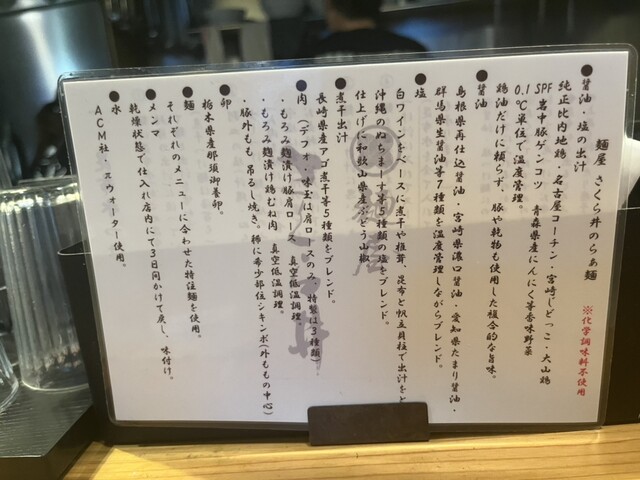 麺屋 さくら井のらぁ麺
※化学調味料不使用
●醤油・塩の出汁
純正比内地鶏・名古屋コーチン・宮崎じどっこ・大山鶏
SPF岩中豚ゲンコツ 青森県産にんにく等香味野菜
0.1℃単位で温度管理。
鶏油だけに頼らず、豚や乾物も使用した複合的な旨味。
●醤油
島根県再仕込醤油・宮崎県濃口醤油・愛知県たまり醤油・
群馬県生醤油等7種類を温度管理しながらブレンド。
●塩
白ワインをベースに煮干や椎茸、昆布と帆立貝柱で出汁をと
沖縄のぬちまーす等5種類の塩をブレンド。
仕上げに和歌山県産ぶどう山椒
●煮干出汁
長崎県産アゴ煮干等5種類をブレンド。
●肉 (デフォ・味玉は肩ロースのみ 特製は3種類)
・もろみ麹漬け豚肩ロース 真空低温調理。
・もろみ麹漬け鶏むね肉 真空低温調理。
・豚外もも 吊るし焼き。稀に希少部位シキンボ(外ももの中心)
●卵
栃木県産那須御養卵。
●麺
それぞれのメニューに合わせた特注麺を使用。
●メンマ
乾燥状態で仕入れ店内にて3日間かけて戻し、味付け。
●水
ACM社・スウォーター使用。